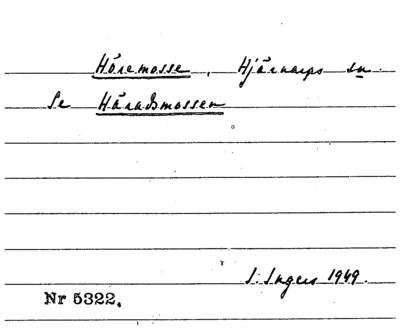 Häremosse, Hjärnarps sn.
Se Häradsmossen
I. Ingers 1949.
Nr 5322.